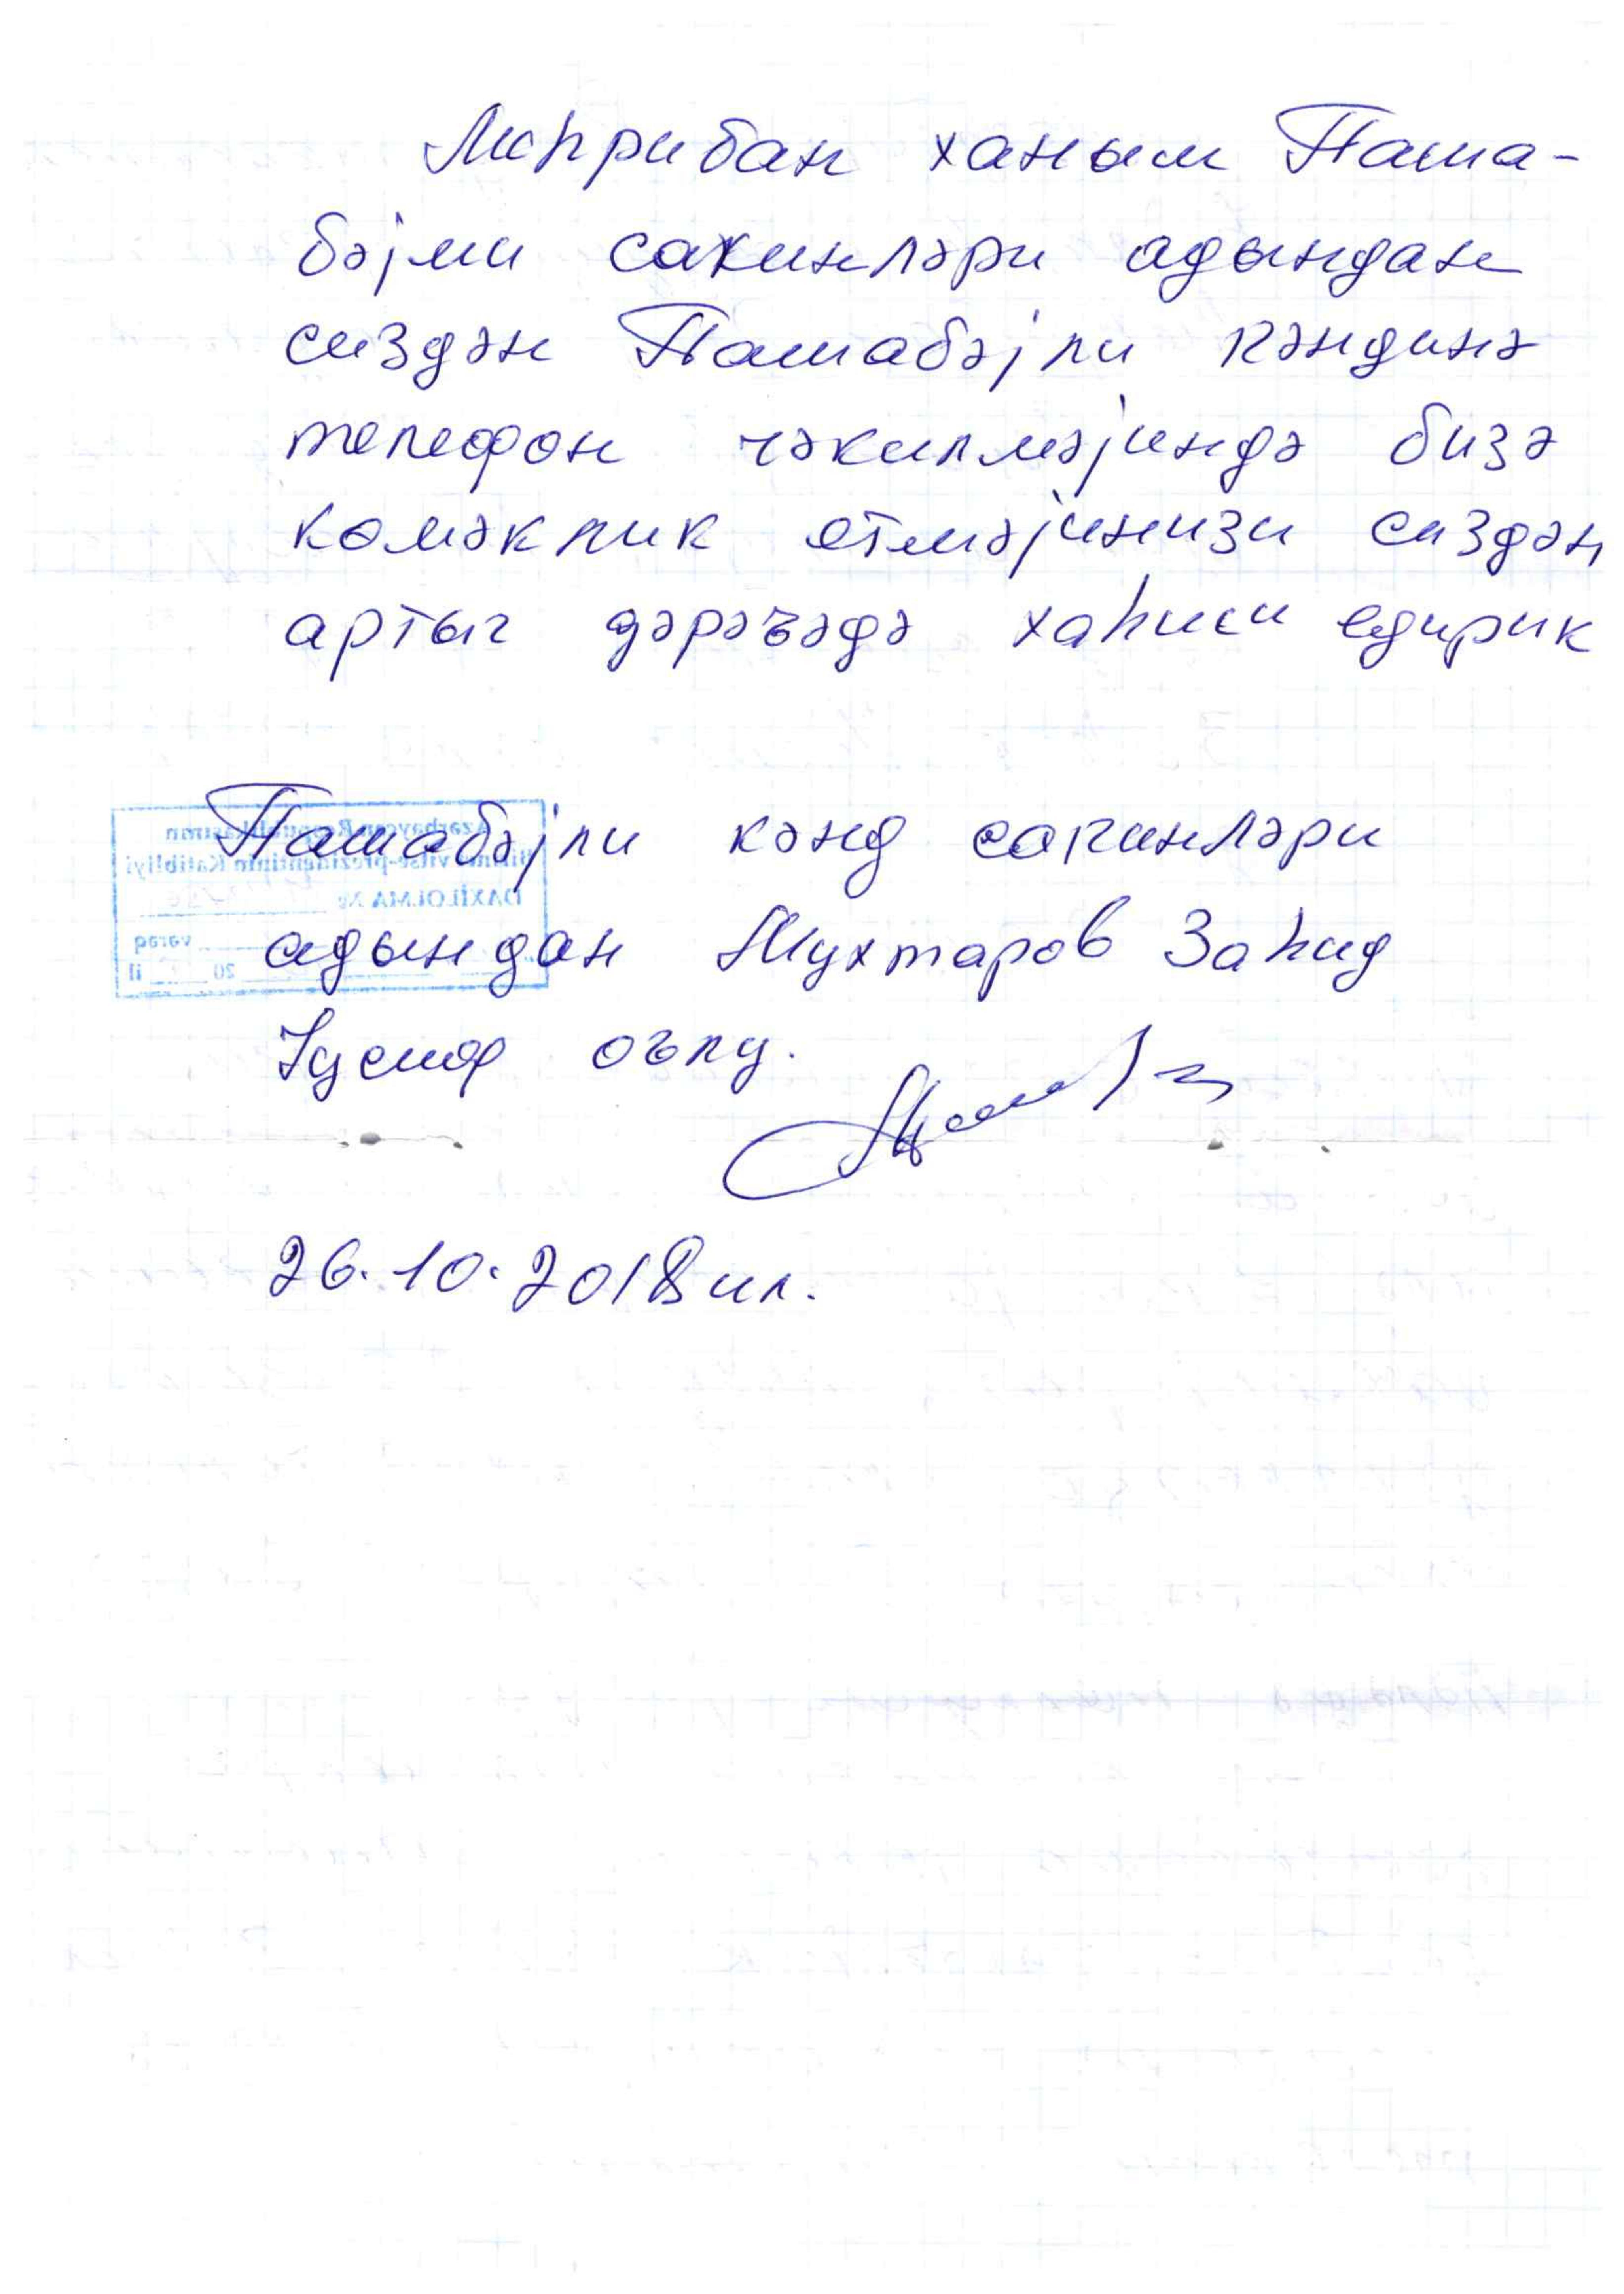 Меһрибан ханым Паша-
бәјли сакинләри адындан
сиздән Пашабәјли кәндинә
телефон чәкилмәјиндә бизә
комәклик етмәјинизи сиздән
артыг дәрәъәдә хаһиш едирик
Пашабәјли кәнд сакинләри
адындан Мухтаров Заһид
Јусиф оълу.
26.10.2018 ил.
Azərbaycan Respublikasının
Birinci vitse-prezidentinin Katibliyi
DAXİLOLMA №
vərəq
20 il